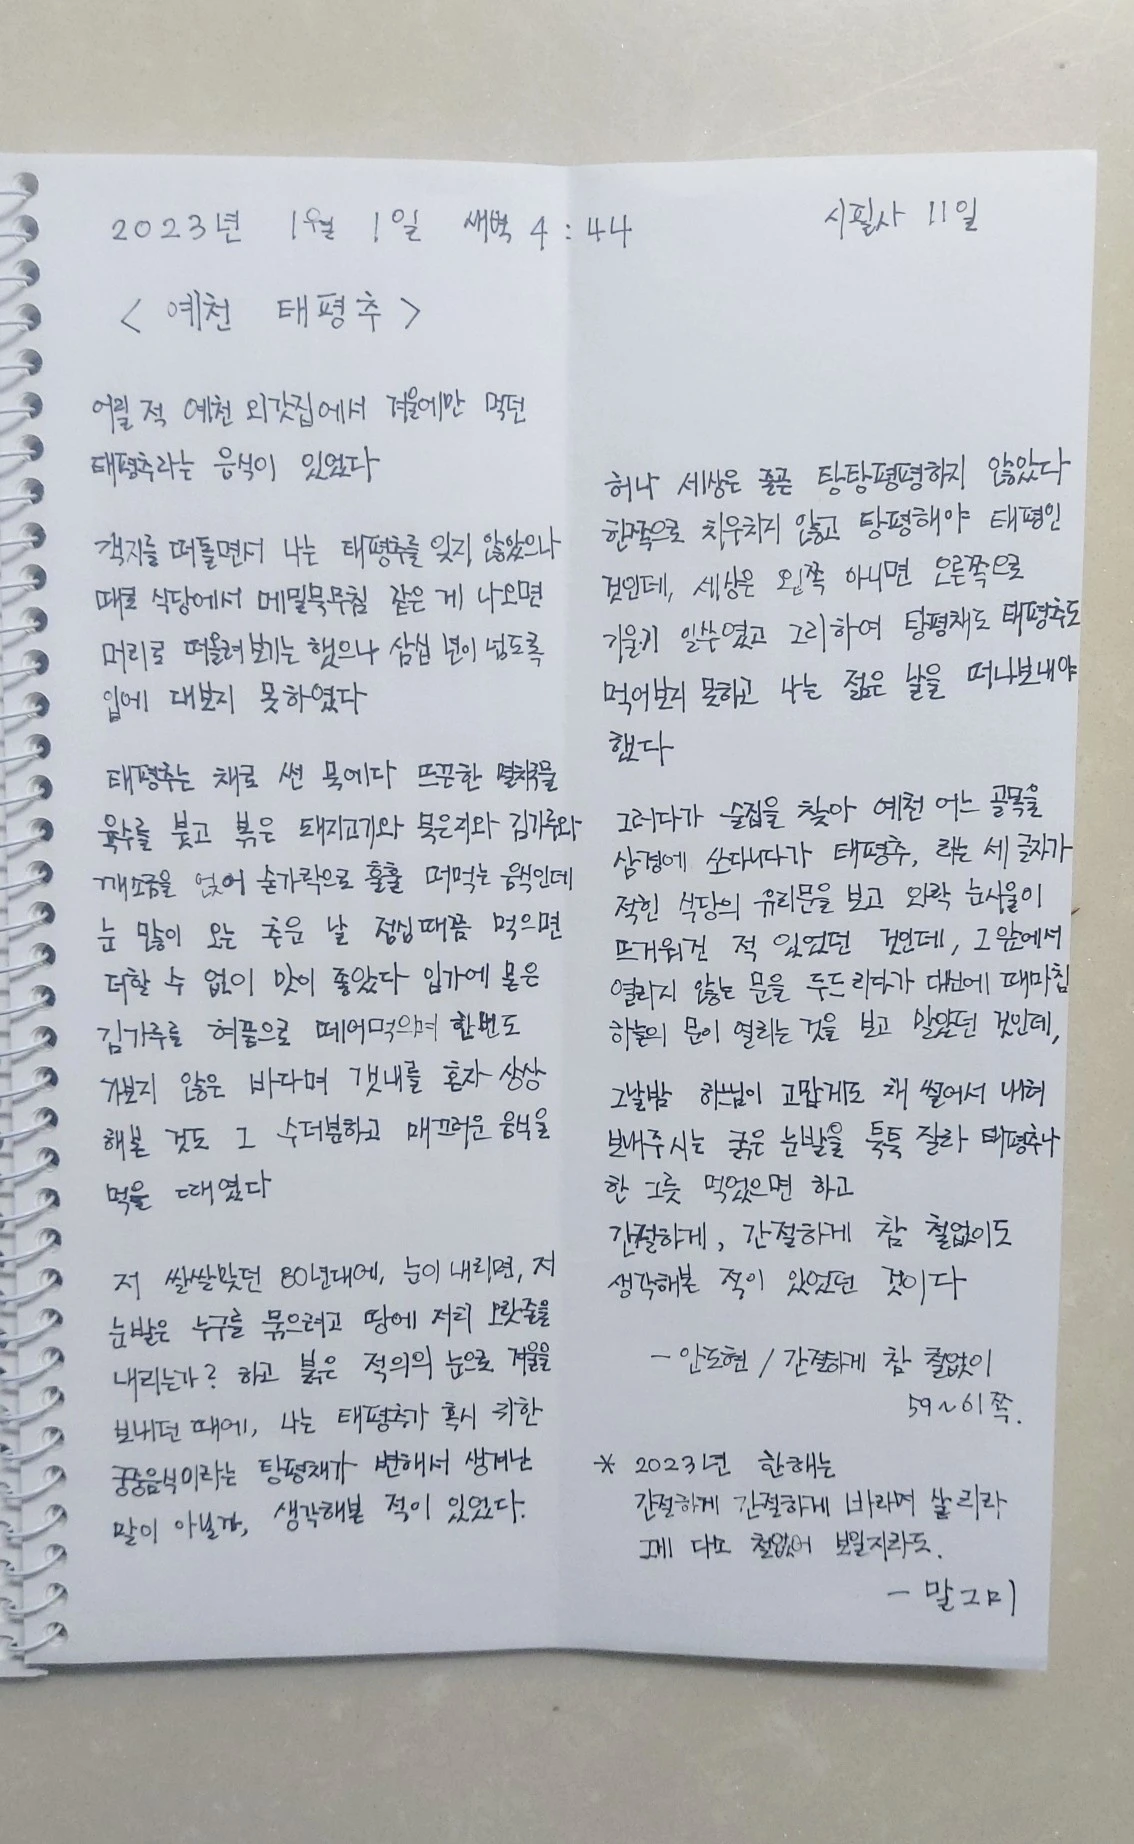 2023년 1월 1일 새벽 4:44
시필사 11일
<예천 태평추>
어릴 적 예천 외갓집에서 겨울에만 먹던
태평추라는 음식이 있었다
객지를 떠돌면서 나는 태평추를 잊지 않았으나
때로 식당에서 메밀묵무침 같은 게 나오면
머리로 떠올려보기는 했으나 삼십 년이 넘도록
입에 대보지 못하였다
태평추는 채로 썬 묵에다 뜨끈한 멸치국물
육수를 붓고 볶은 돼지고기와 묵은지와 김가루와
깨소금을 얹어 숟가락으로 훌훌 떠먹는 음식인데
눈 많이 오는 추운 날 점심때쯤 먹으면
더할 수 없이 맛이 좋았다 입가에 묻은
김가루를 혀끝으로 떼어먹으며 한번도
가보지 않은 바다며 갯내를 혼자 상상
해본 것도 그 수더분하고 매끄러운 음식을
먹을 때였다
저 쌀쌀맞던 80년대에, 눈이 내리면, 저
눈발은 누구를 묶으려고 땅에 저리 오랏줄을
내리는가? 하고 붉은 적의의 눈으로 겨울을
보내던 때에, 나는 태평추가 혹시 귀한
궁중음식이라는 탕평채가 변해서 생겨난
말이 아닐까, 생각해본 적이 있었다.
허나 세상은 줄곧 탕탕평평하지 않았다
한쪽으로 치우치지 않고 탕평해야 태평인
것인데, 세상은 왼쪽 아니면 오른쪽으로
기울기 일쑤였고 그리하여 탕평채도 태평추도
먹어보지 못하고 나는 젊은 날을 떠나보내야
했다
그러다가 술집을 찾아 예천 어느 골목을
삼경에 쏘다니다가 태평추, 라는 세 글자가
적힌 식당의 유리문을 보고 와락 눈시울이
뜨거워진 적 있었던 것인데, 그 앞에서
열리지 않는 문을 두드리다가 대번에 때마침
하늘의 문이 열리는 것을 보고 말았던 것인데,
그날밤 하느님이 고맙게도 채 썰어서 내려
보내주시는 굵은 눈발을 툭툭 잘라 태평추나
한 그릇 먹었으면 하고
간절하게, 간절하게 참 철없이도
생각해본 적이 있었던 것이다
- 안도현 / 간절하게 참 철없이
59~61쪽.
* 2023년 한해는
간절하게 간절하게 바라며 살리라
그게 다소 철없어 보일지라도.
- 말그미